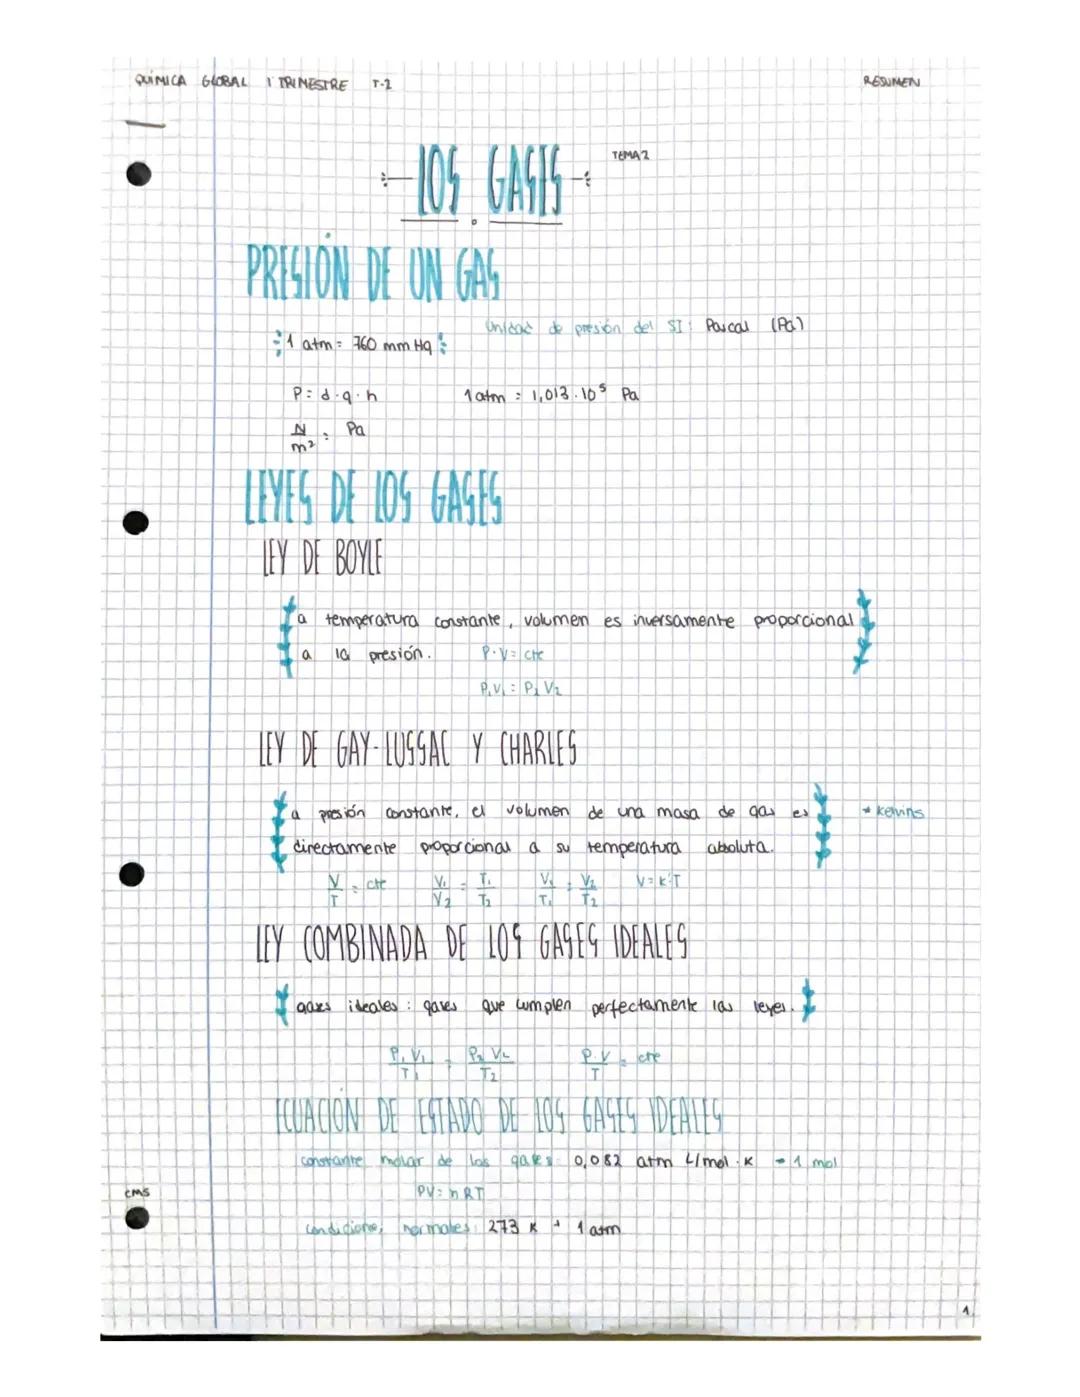 QUÍMICA GLOBAL 1 TRIMESTRE T-2 RESUMEN
LOS GASES TEMA 2
PRESIÓN DE UN GAS
Unidad de presión del SI: Pascal (Pa)
1 atm = 760 mm Hg
P = d·g·h 1 atm = 1,013·10⁵ Pa
N/m² = Pa
LEYES DE LOS GASES
LEY DE BOYLE
a temperatura constante, volumen es inversamente proporcional
a la presión. P·V = cte
P₁V₁ = P₂V₂
LEY DE GAY-LUSSAC Y CHARLES
a presión constante, el volumen de una masa de gas es * kelvins
directamente proporcional a su temperatura absoluta.
V/T = cte V₁/V₂ = T₁/T₂ V₁/T₁ = V₂/T₂ V = K·T
LEY COMBINADA DE LOS GASES IDEALES
gases ideales: gases que cumplen perfectamente las leyes.
P₁V₁/T₁ = P₂V₂/T₂ P·V/T = cte
ECUACIÓN DE ESTADO DE LOS GASES IDEALES
constante molar de los gases: 0,082 atm L/mol·K → 1 mol
PV = nRT
CMS
condiciones normales: 273 K + 1 atm
1.